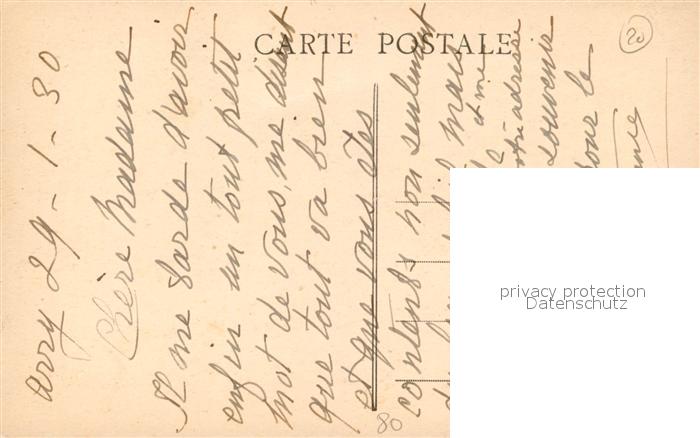 CARTE POSTALE
20
Arry 29-1-30
Chère Madame
Il me tarde d'avoir
enfin un tout petit
mot de vous, me disant
que tout va bien
et que vous êtes
contents non seulement
mais
et me
votre adresse
souvenir
pour le
80
privacy protection
Datenschutz